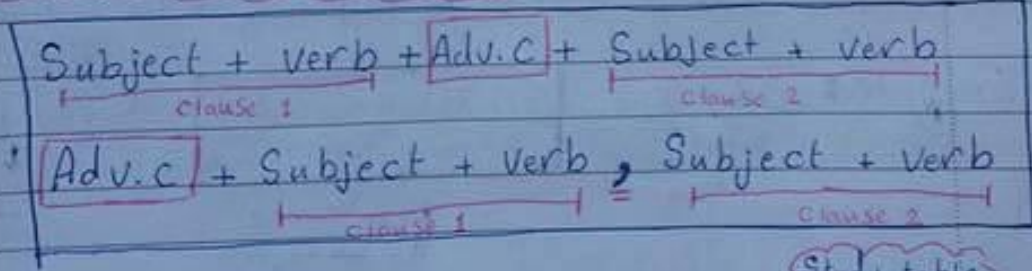 Subject + verb + Adv.c + Subject + verb
clause 1 clause 2
Adv.c + Subject + verb , Subject + verb
clause 1 clause 2